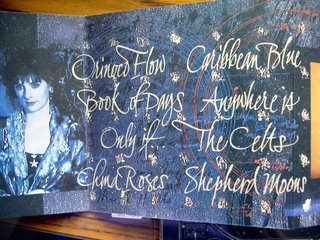 Orinoco Flow Caribbean Blue
Book of Days Anywhere is
Only if... The Celts
China Roses Shepherd Moons